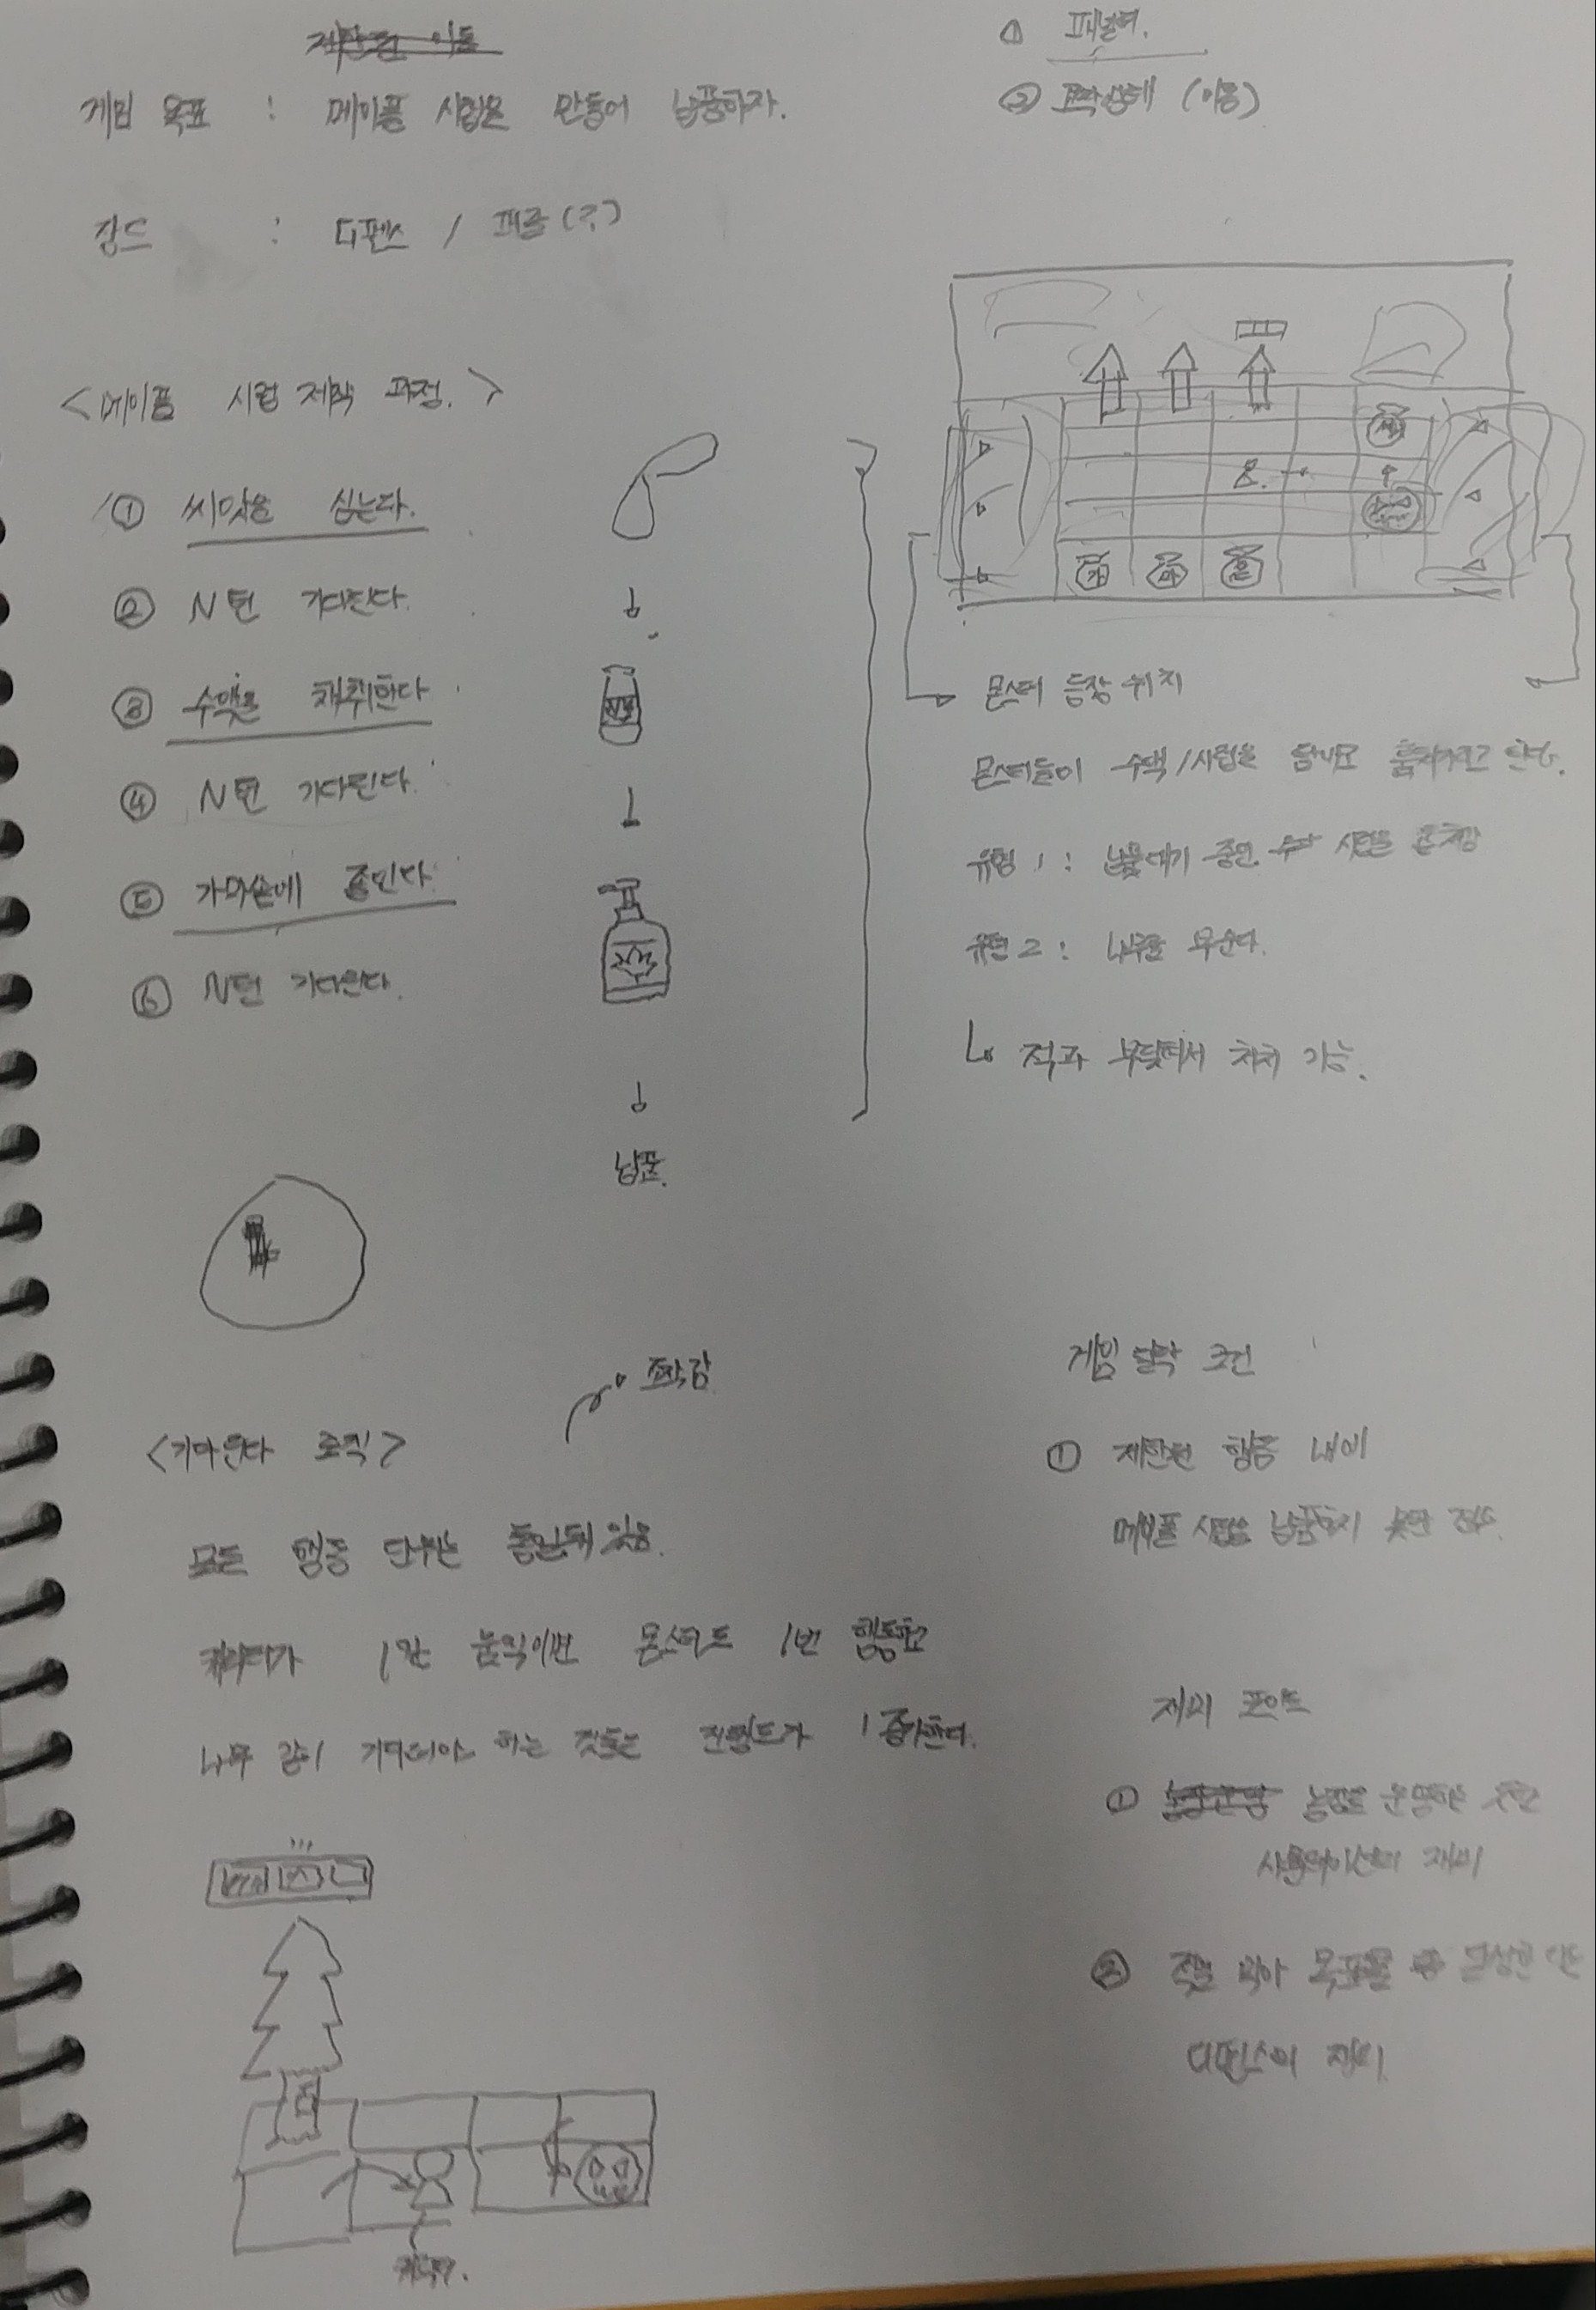 제한된 이동
게임 목표 : 메이플 시럽을 만들어 납품하자.
장르 : 디펜스 / 퍼즐(?)
<메이플 시럽 제작 과정.>
① 씨앗을 심는다.
② N턴 기다린다.
③ 수액을 채취한다.
④ N턴 기다린다.
⑤ 가마솥에 졸인다.
⑥ N턴 기다린다.
수액
납품.
① 패널티.
② 조작상태 (이동)
가
마
솥
몬스터 등장 위치
몬스터들이 수액/시럽을 훔쳐가려고 한다.
유형 1 : 납품대기 중인 시럽을 훔쳐감
유형 2 : 나무를 부순다.
적과 부딪혀서 처치 가능.
조작감
<기다린다 로직>
모든 행동 단위는 통일돼 있음.
캐릭터가 1칸 움직이면 몬스터도 1번 행동하고
나무 같이 기다려야 하는 것들은 진행도가 1 증가한다.
캐릭터.
게임 탈락 조건
① 제한된 행동 내에
메이플 시럽을 납품하지 못한 경우.
재미 포인트
① 농장을 운영하는 듯한
시뮬레이션의 재미
② 적을 막아 목표를 달성한
디펜스의 재미